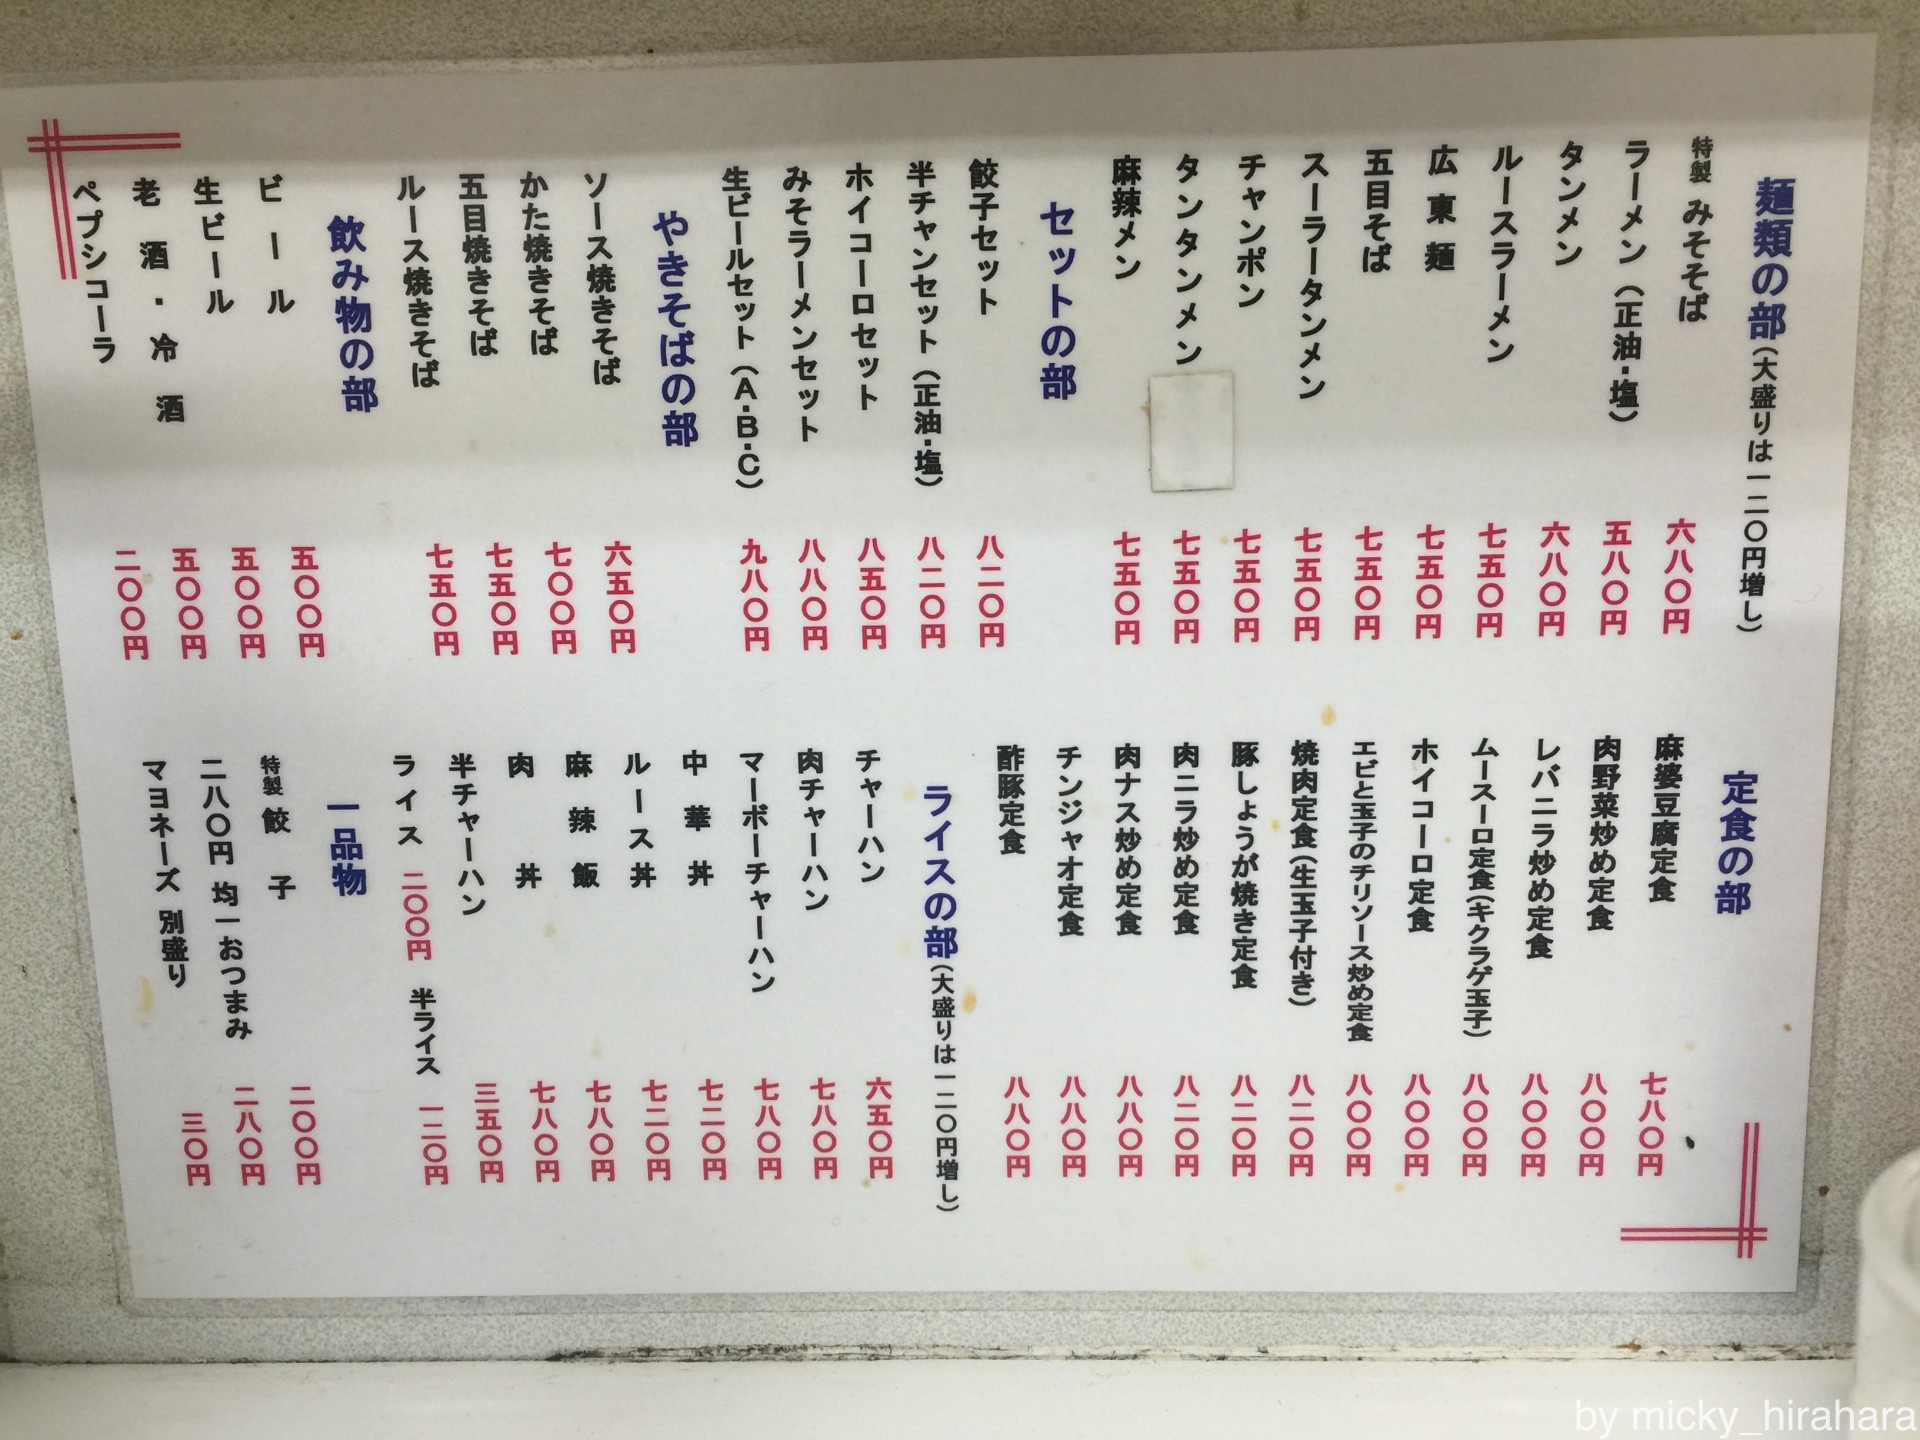 麺類の部(大盛りは一二〇円増し)
特製 みそそば 六八〇円
ラーメン(正油・塩) 五八〇円
タンメン 六八〇円
ルースラーメン 七五〇円
広東麺 七五〇円
五目そば 七五〇円
スーラータンメン 七五〇円
チャンポン 七五〇円
タンタンメン 七五〇円
麻辣メン 七五〇円
セットの部
餃子セット 八二〇円
半チャンセット(正油・塩) 八二〇円
ホイコーロセット 八五〇円
みそラーメンセット 八八〇円
生ビールセット(A・B・C) 九八〇円
やきそばの部
ソース焼きそば 六五〇円
かた焼きそば 七〇〇円
五目焼きそば 七五〇円
ルース焼きそば 七五〇円
飲み物の部
ビール 五〇〇円
生ビール 五〇〇円
老酒・冷酒 五〇〇円
ペプシコーラ 二〇〇円
定食の部
麻婆豆腐定食 七八〇円
肉野菜炒め定食 八〇〇円
レバニラ炒め定食 八〇〇円
ムースーロ定食(キクラゲ玉子) 八〇〇円
ホイコーロ定食 八〇〇円
エビと玉子のチリソース炒め定食 八〇〇円
焼肉定食(生玉子付き) 八二〇円
豚しょうが焼き定食 八二〇円
肉ニラ炒め定食 八二〇円
肉ナス炒め定食 八八〇円
チンジャオ定食 八八〇円
酢豚定食 八八〇円
ライスの部(大盛りは一二〇円増し)
チャーハン 六五〇円
肉チャーハン 七八〇円
マーボーチャーハン 七八〇円
中華丼 七二〇円
ルース丼 七二〇円
麻辣飯 七八〇円
肉丼 七八〇円
半チャーハン 三五〇円
ライス 二〇〇円 半ライス 一二〇円
一品物
特製 餃子 二〇〇円
二八〇円 均一おつまみ 二八〇円
マヨネーズ 別盛り 三〇円
by micky_hirahara